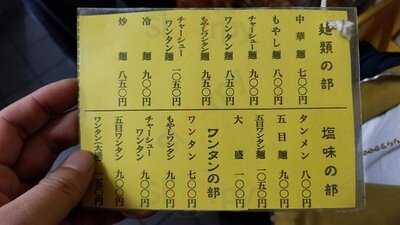 麺類の部
中華麺 七〇〇円
もやし麺 八〇〇円
チャーシュー麺 九〇〇円
ワンタン麺 八五〇円
もやしワンタン麺 九五〇円
チャーシューワンタン麺 一〇五〇円
冷麺 九〇〇円
炒麺 八五〇円
塩味の部
タンメン 八〇〇円
五目麺 九〇〇円
五目ワンタン麺 一〇五〇円
大盛 一〇〇円
ワンタンの部
ワンタン 七〇〇円
もやしワンタン 八〇〇円
チャーシューワンタン 九〇〇円
五目ワンタン 九〇〇円
ワンタン大盛